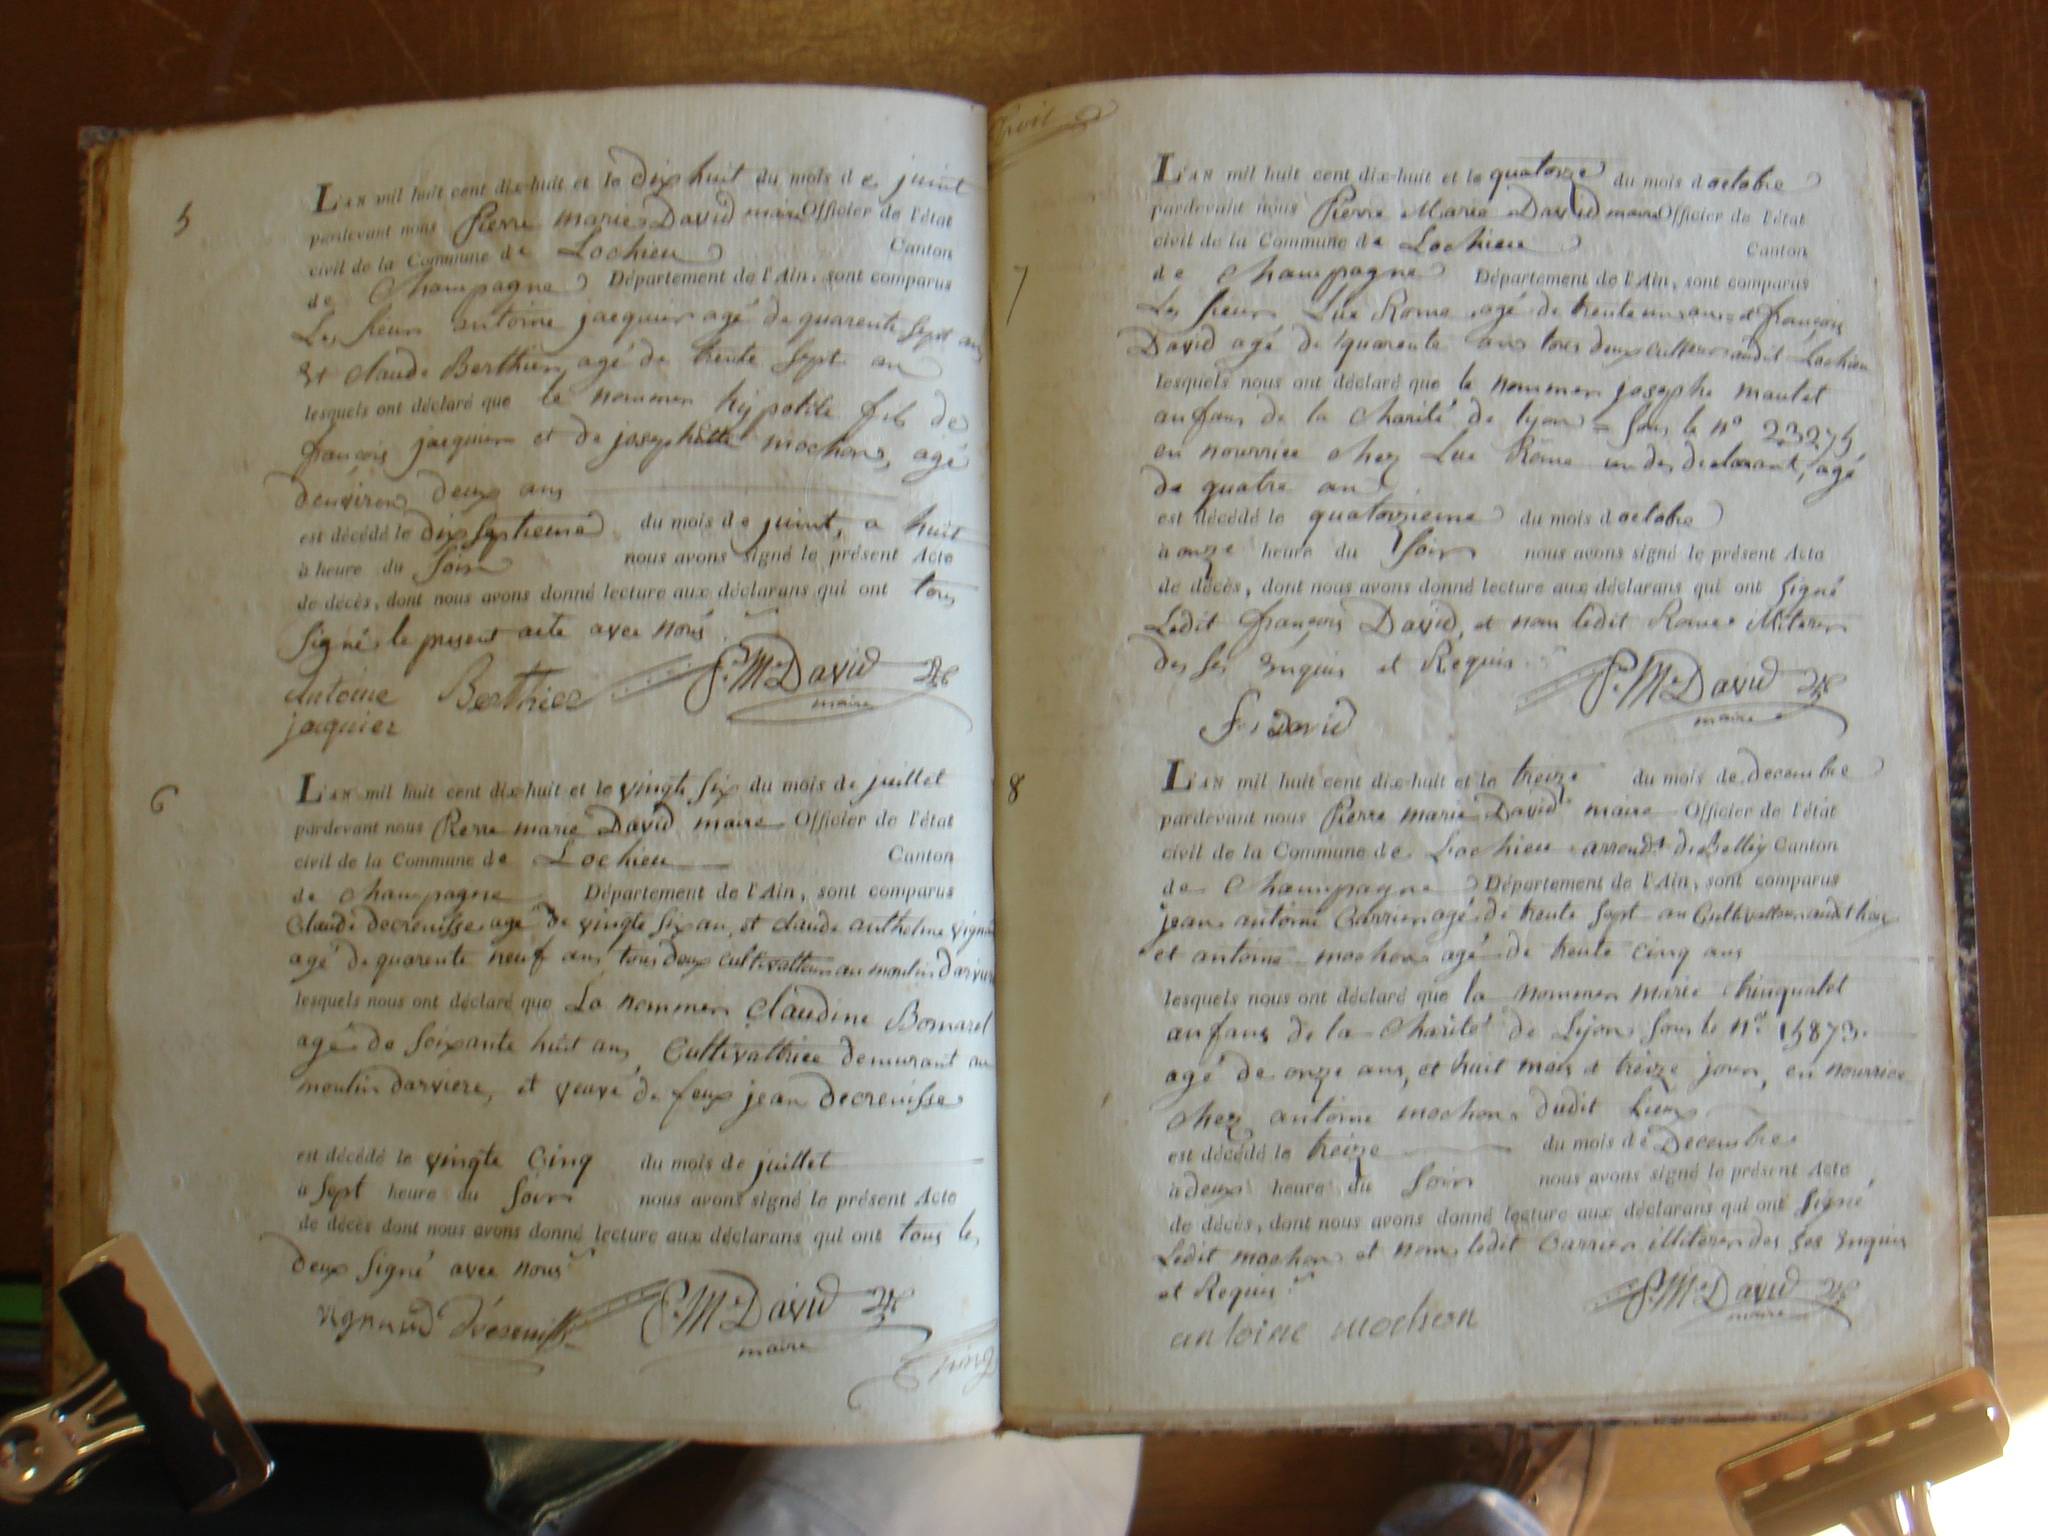 5
L'AN mil huit cent dix-huit et le dix huit du mois de juint
pardevant nous Pierre marie David maire Officier de l'état
civil de la Commune de Lochieu Canton
de Champagne Département de l'Ain, sont comparus
Les sieur antoine jacquier agé de quarente sept ans
Et claude Berthier, agé de trente sept an
lesquels ont déclaré que le nommer hypolite fils de
françois jacquier et de josephette mochon, agé
denviron deux ans
est décédé le dix septieme du mois de juint, a huit
à heure du soir nous avons signé le présent Acte
de décès, dont nous avons donné lecture aux déclarans qui ont tous
signé le present acte avec nous
Antoine Berthier P. Me David
jaquier maire
6
L'AN mil huit cent dix-huit et le vingte six du mois de juillet
pardevant nous Pierre marie David maire Officier de l'état
civil de la Commune de Lochieu Canton
de Champagne Département de l'Ain, sont comparus
Claude decrenisse agé de vingte six an, et claude anthelme vignau
agé de quarente neuf ans, tous deux cultivatteur au moulin darviere
lesquels nous ont déclaré que La nommer Claudine Bomarel
agé de soixante huit ans, Cultivattrice demurant au
moulin darviere, et veuve de feux jean decrenisse
est décédé le vingte Cinq du mois de juillet
à sept heure du soir nous avons signé le présent Acte
de décès dont nous avons donné lecture aux déclarans qui ont tous les
deux signé avec nous
vignaud P. Me David
maire
Cinq
Civil
7
L'AN mil huit cent dix-huit et le quatorze du mois d octobre
pardevant nous Pierre Marie David maire Officier de l'état
civil de la Commune de Lochieu Canton
de Champagne Département de l'Ain, sont comparus
Les sieur Luc Rome, agé de trente un ans et françois
David agé de quarente ans tous deux culteur audit Lochieu
lesquels nous ont déclaré que le nommer josephe mautet
anfans de la Charité de lyon = sous le no 23275
en nourrice chez Luc Rome un des declarant, agé
de quatre an
est décédé le quatorzieme du mois d octobre
à onze heure du soir nous avons signé le présent Acte
de décès, dont nous avons donné lecture aux déclarans qui ont signé
Ledit françois David, et non ledit Rome illiterer
des ses Enquis et Requis
P. Me David
fs David maire
8
L'AN mil huit cent dix-huit et le treize du mois de decembre
pardevant nous Pierre marie David maire Officier de l'état
civil de la Commune de Lochieu arrondt de Belley Canton
de Champagne Département de l'Ain, sont comparus
jean antoine Carrier agé de trente sept an Cultivatteur audit lieu
et antoine mochon agé de trente cinq ans
lesquels nous ont déclaré que la nommer marie
anfans de la Charité de Lyon sous le no 15873.
agé de onze ans, et huit mois et treize jours, en nourrice
chez antoine mochon dudit Lieux
est décédé le treize du mois de Decembre
à deux heure du soir nous avons signé le présent Acte
de décès, dont nous avons donné lecture aux déclarans qui ont signé
Ledit mochon et non ledit Carrier illiterer des ses Enquis
et Requis
P. Me David
antoine mochon maire